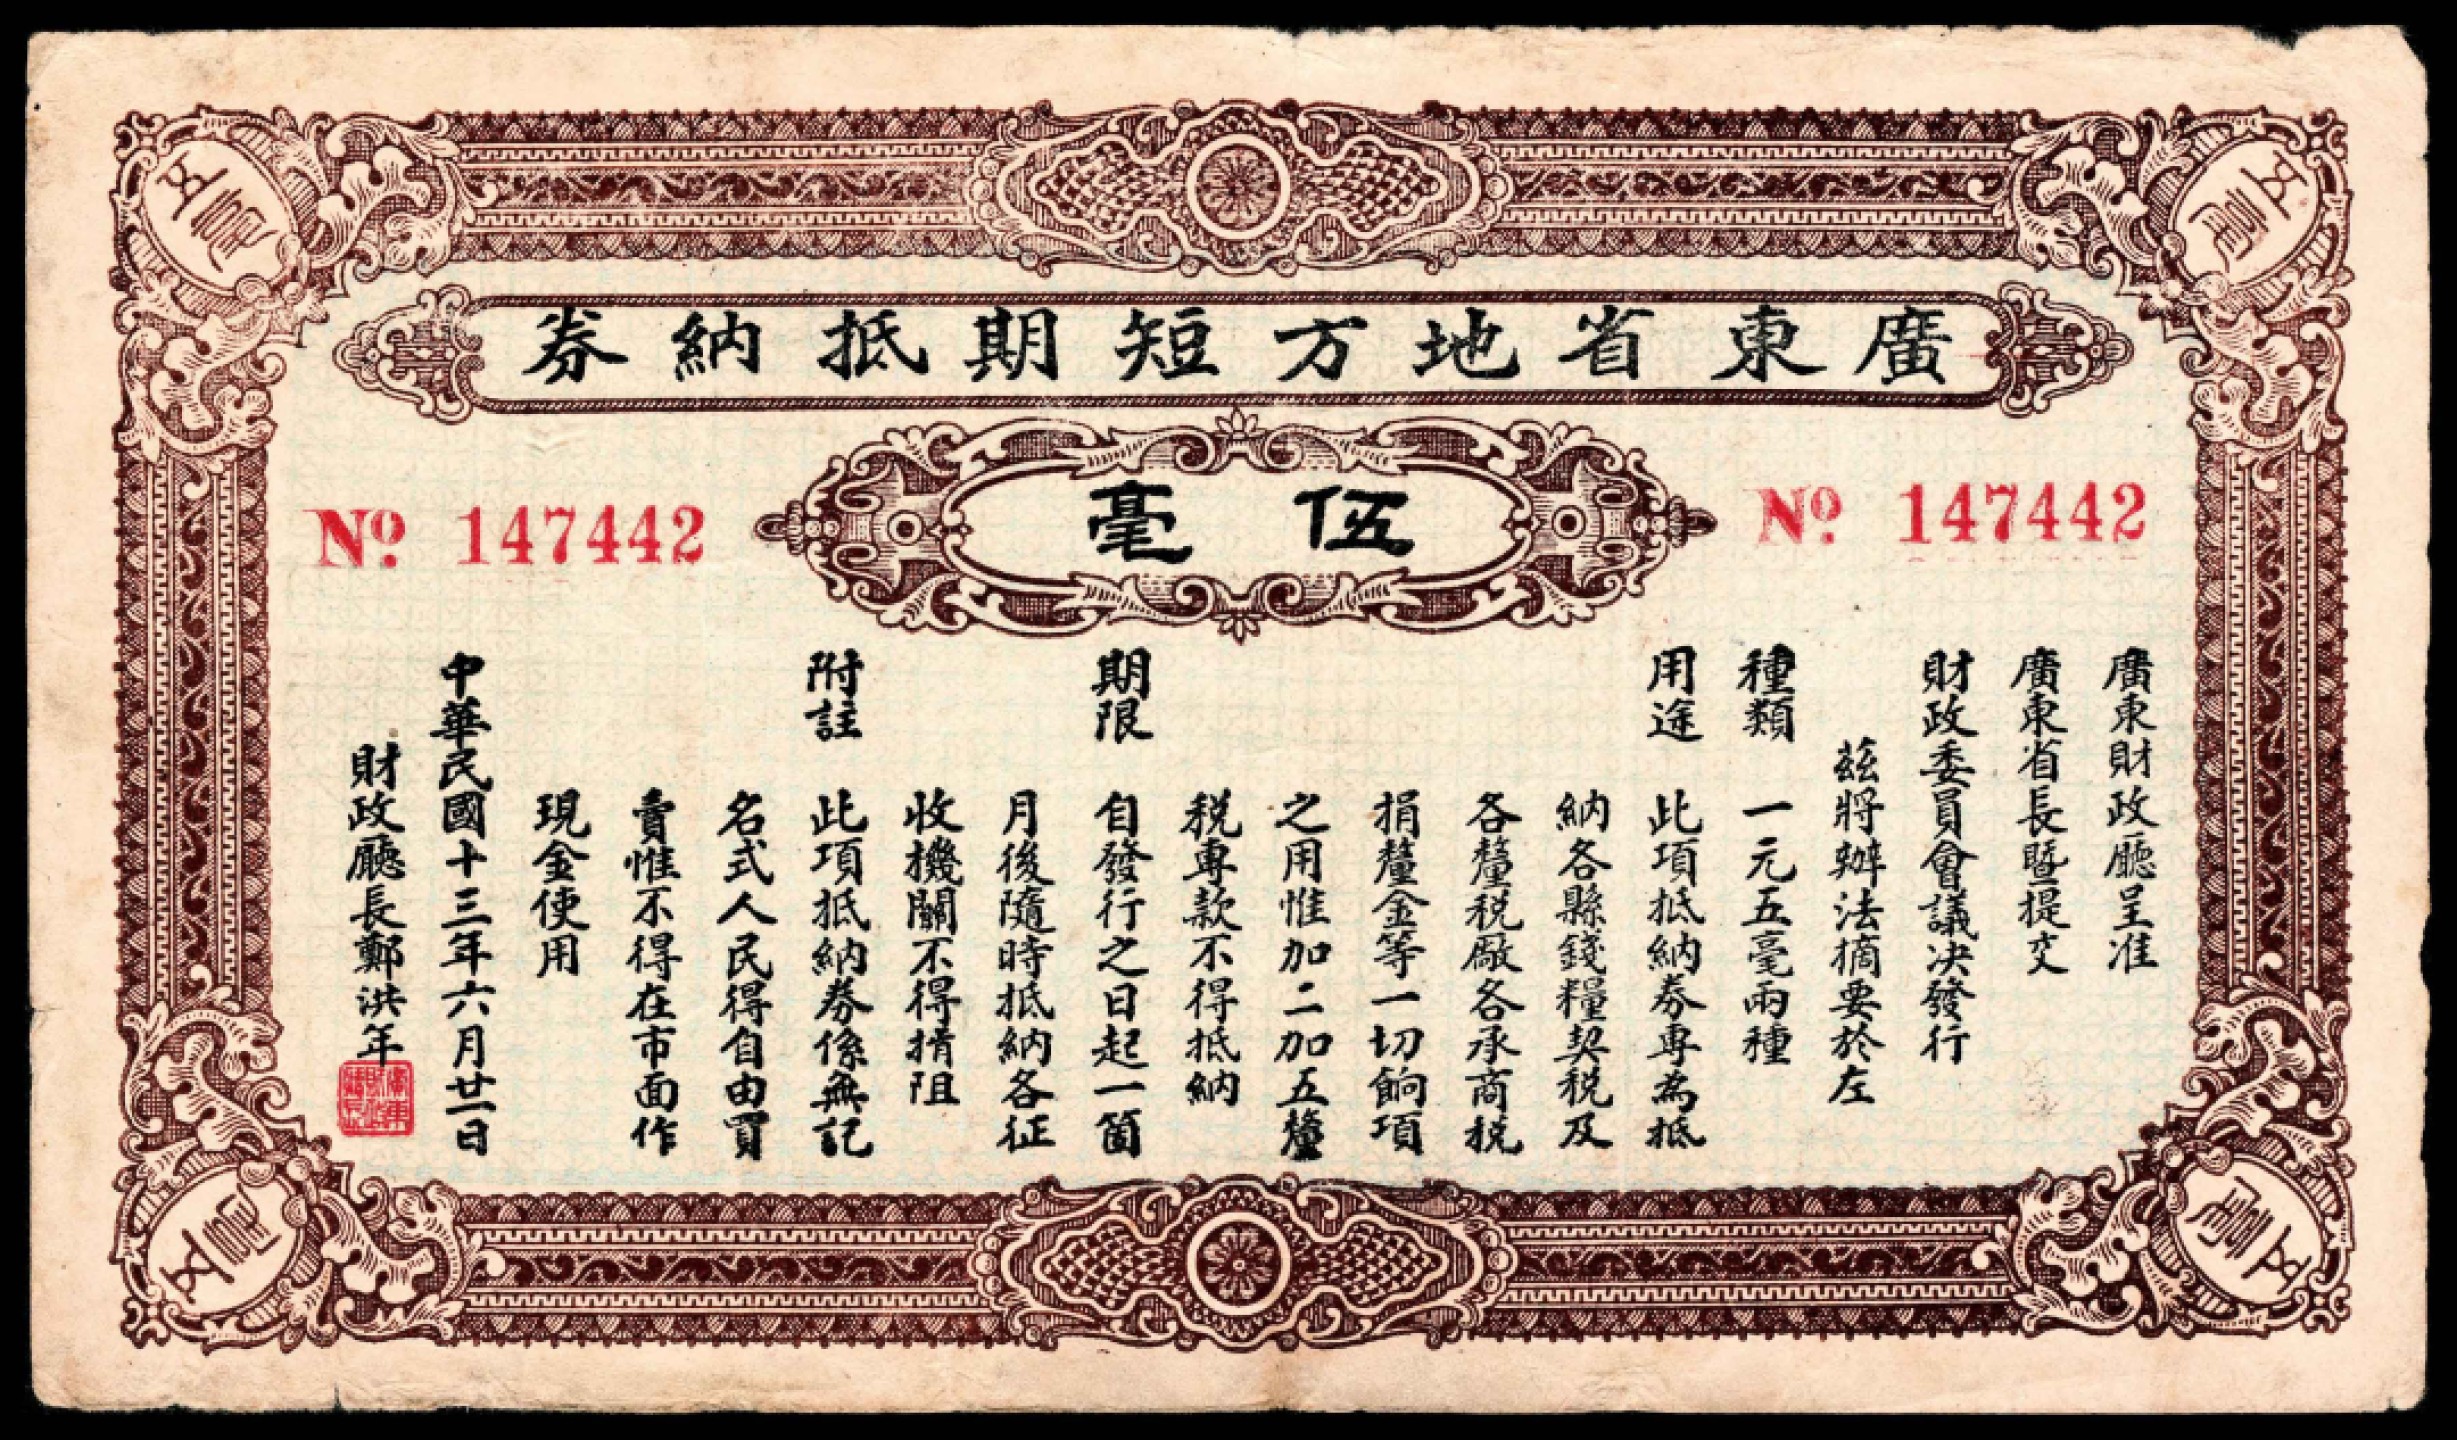 廣東省地方短期抵納券
伍毫
No. 147442
No. 147442
廣東財政廳呈准
廣東省長暨提交
財政委員會議決發行
茲將辦法摘要於左
種類 一元五毫兩種
用途 此項抵納券專為抵
納各縣錢糧契稅及
各釐稅厰各承商稅
捐釐金等一切餉項
之用惟加二加五釐
稅專款不得抵納
期限 自發行之日起一箇
月後隨時抵納各征
收機關不得揹阻
附註 此項抵納券係無記
名式人民得自由買
賣惟不得在市面作
現金使用
中華民國十三年六月廿一日
財政廳長鄭洪年
五毫
五毫
五毫
五毫